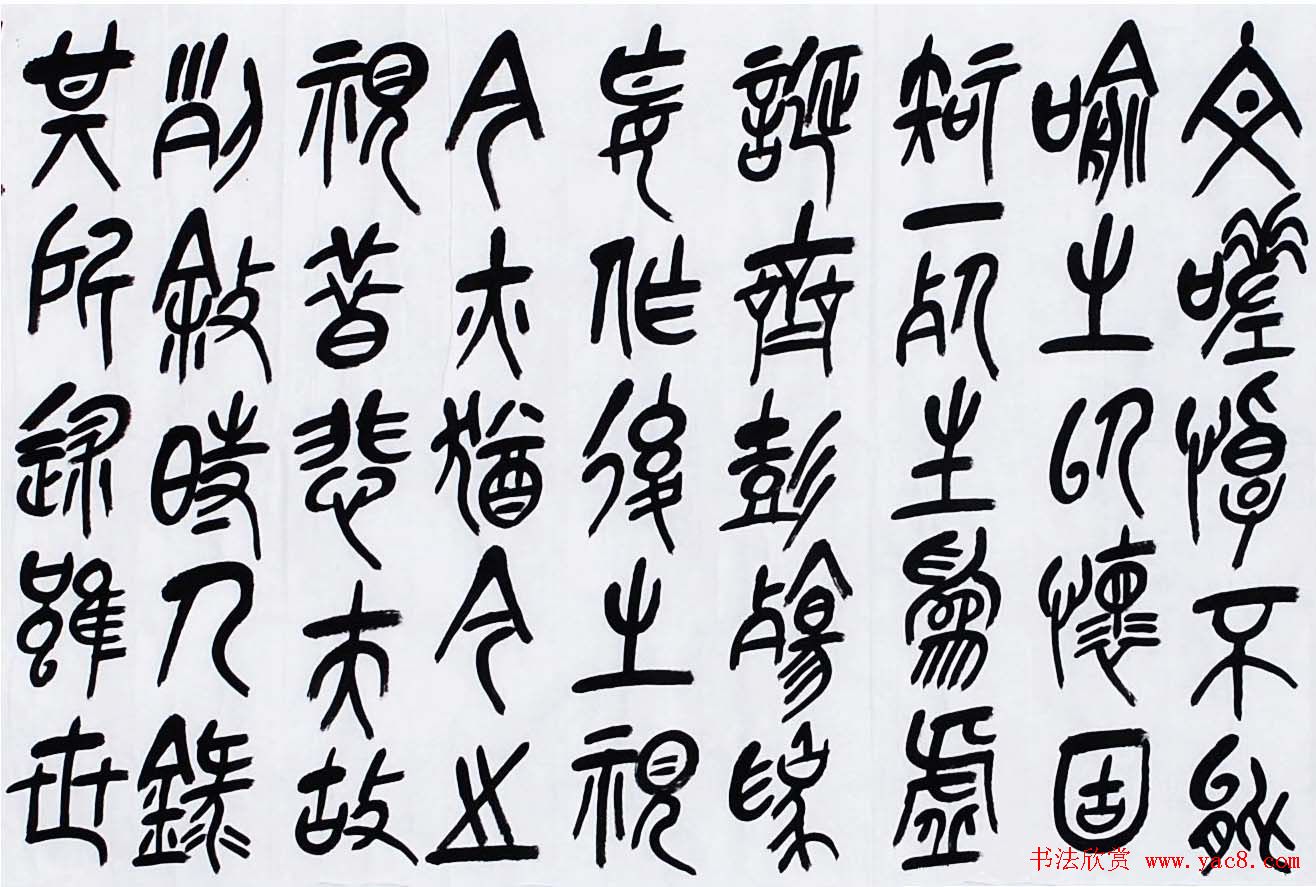 文嗟悼不能
喻之於懷固
知一死生為虛
誕齊彭殤為
妄作後之視
今亦猶今之
視昔悲夫故
列敘時人錄
其所述雖世
书法欣赏 www.yac8.com